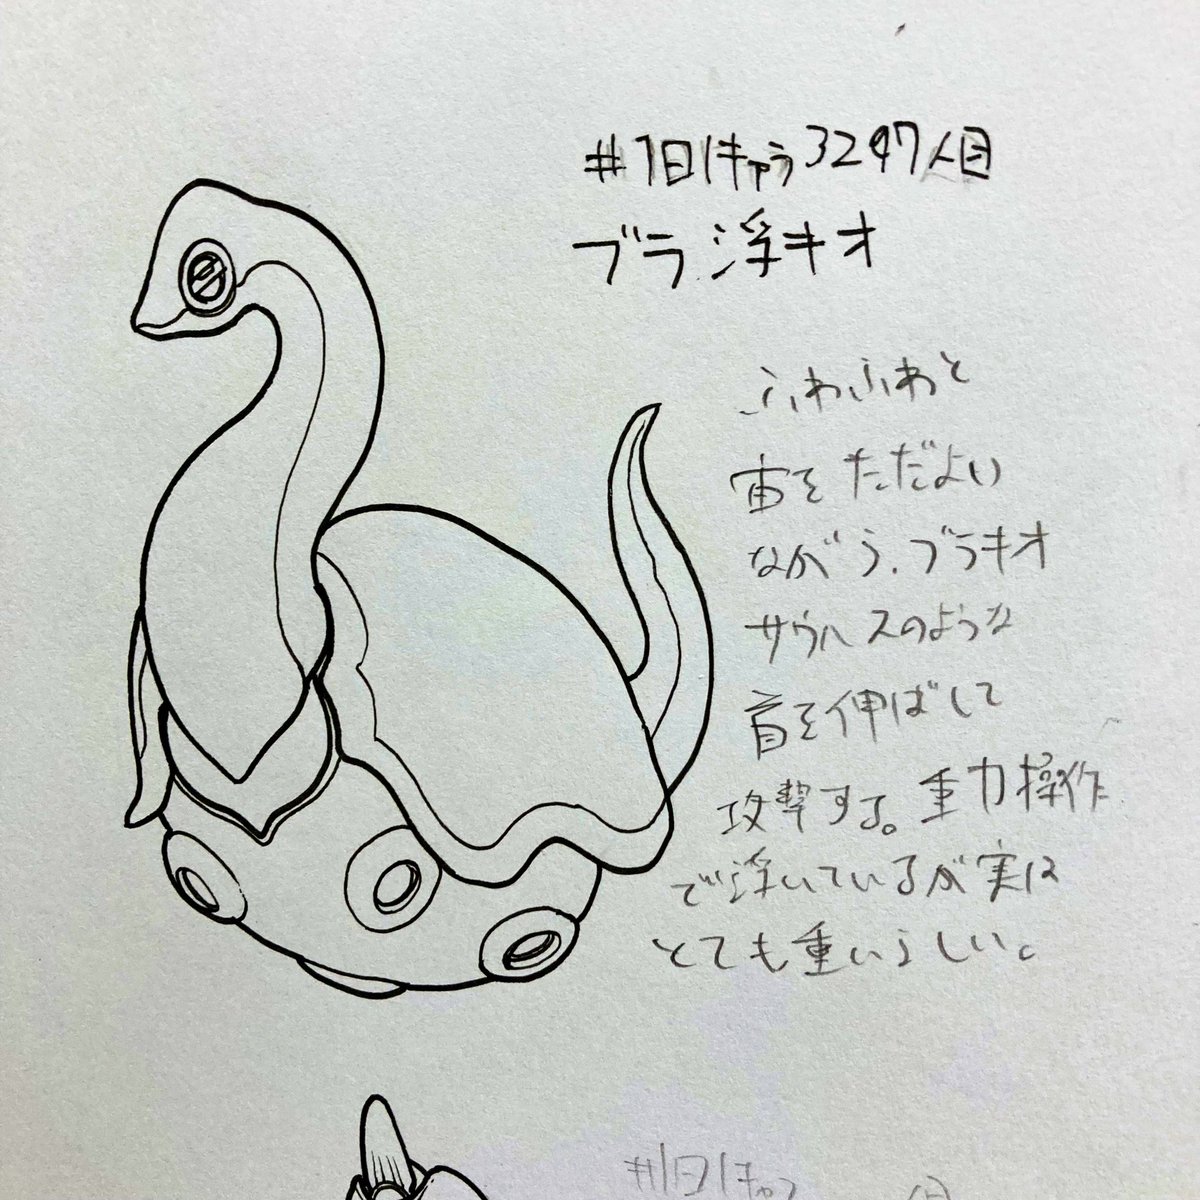 #1日1キャラ3297人目
ブラ浮キオ
ふわふわと
宙をただよい
ながら、ブラキオ
サウルスのような
首を伸ばして
攻撃する。重力操作
で浮いているが実は
とても重いらしい。
#1日1キャラ